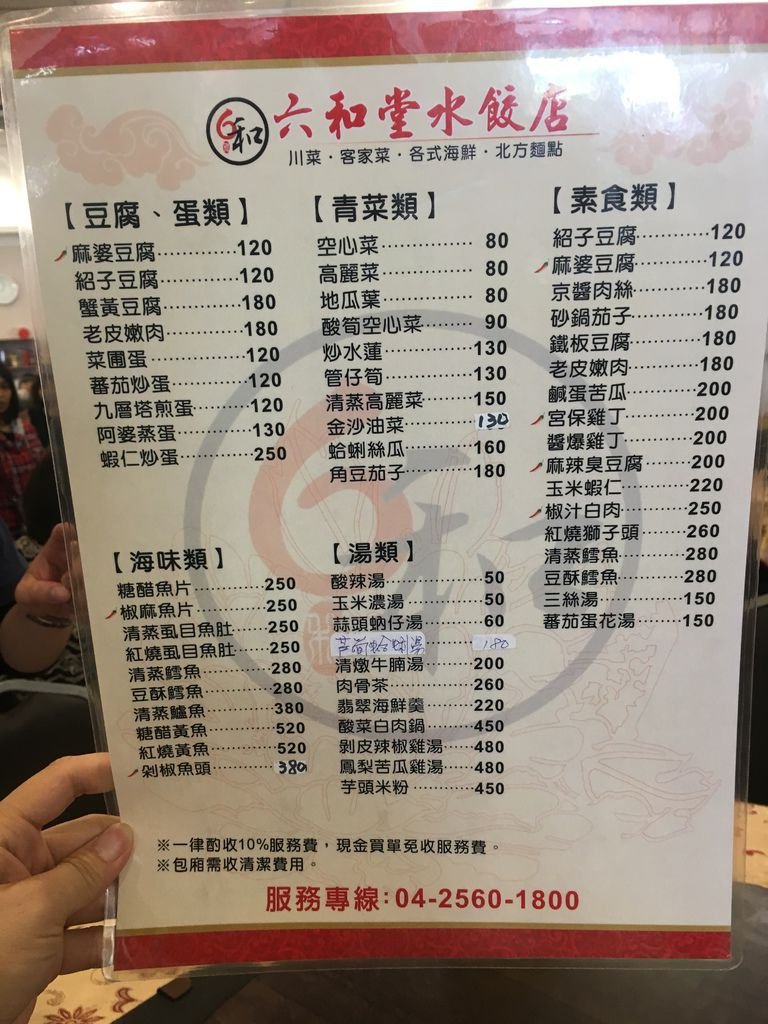 和 六和堂水餃店
川菜・客家菜・各式海鮮・北方麵點
【豆腐、蛋類】
麻婆豆腐 120
紹子豆腐 120
蟹黃豆腐 180
老皮嫩肉 180
菜圃蛋 120
蕃茄炒蛋 120
九層塔煎蛋 120
阿婆蒸蛋 130
蝦仁炒蛋 250
【青菜類】
空心菜 80
高麗菜 80
地瓜葉 80
酸筍空心菜 90
炒水蓮 130
管仔筍 130
清蒸高麗菜 150
金沙油菜 130
蛤蜊絲瓜 160
角豆茄子 180
【素食類】
紹子豆腐 120
麻婆豆腐 120
京醬肉絲 180
砂鍋茄子 180
鐵板豆腐 180
老皮嫩肉 180
鹹蛋苦瓜 200
宮保雞丁 200
醬爆雞丁 200
麻辣臭豆腐 200
玉米蝦仁 220
椒汁白肉 250
紅燒獅子頭 260
清蒸鱈魚 280
豆酥鱈魚 280
三絲湯 150
蕃茄蛋花湯 150
【海味類】
糖醋魚片 250
椒麻魚片 250
清蒸虱目魚肚 250
紅燒虱目魚肚 250
清蒸鱈魚 280
豆酥鱈魚 280
清蒸鱸魚 380
糖醋黃魚 520
紅燒黃魚 520
剁椒魚頭 380
【湯類】
酸辣湯 50
玉米濃湯 50
蒜頭蚋仔湯 60
芦筍蛤蜊湯 180
清燉牛腩湯 200
肉骨茶 260
翡翠海鮮羹 220
酸菜白肉鍋 450
剝皮辣椒雞湯 480
鳳梨苦瓜雞湯 480
芋頭米粉 450
※一律酌收10%服務費，現金買單免收服務費。
※包廂需收清潔費用。
服務專線:04-2560-1800